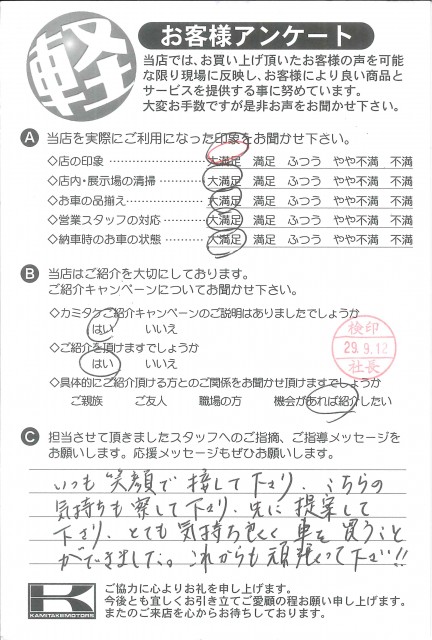 軽
お客様アンケート
当店では、お買い上げ頂いたお客様の声を可能
な限り現場に反映し、お客様により良い商品と
サービスを提供する事に努めています。
大変お手数ですが是非お声をお聞かせ下さい。
A 当店を実際にご利用になった印象をお聞かせ下さい。
◇店の印象 大満足 満足 ふつう やや不満 不満
◇店内・展示場の清掃 大満足 満足 ふつう やや不満 不満
◇お車の品揃え 大満足 満足 ふつう やや不満 不満
◇営業スタッフの対応 大満足 満足 ふつう やや不満 不満
◇納車時のお車の状態 大満足 満足 ふつう やや不満 不満
B 当店はご紹介を大切にしております。
ご紹介キャンペーンについてお聞かせ下さい。
◇カミタケご紹介キャンペーンのご説明はありましたでしょうか
はい いいえ
◇ご紹介を頂けますでしょうか
はい いいえ
◇具体的にご紹介頂ける方とのご関係をお聞かせ頂けますでしょうか
ご親族 ご友人 職場の方 機会があれば紹介したい
検印
29.9.12
社長
C 担当させて頂きましたスタッフへのご指摘、ご指導メッセージを
お願いします。応援メッセージもぜひお願いします。
いつも笑顔で接して下さり、こちらの
気持ちも察して下さり、先に提案して
下さり、とても気持ち良く車を買うこと
ができました。これからも頑張って下さい!!
K
KAMITAKEMOTORS
ご協力に心よりお礼を申し上げます。
今後とも宜しくお引き立てご愛顧の程お願い申し上げます。
またのご来店を心からお待ちしております。